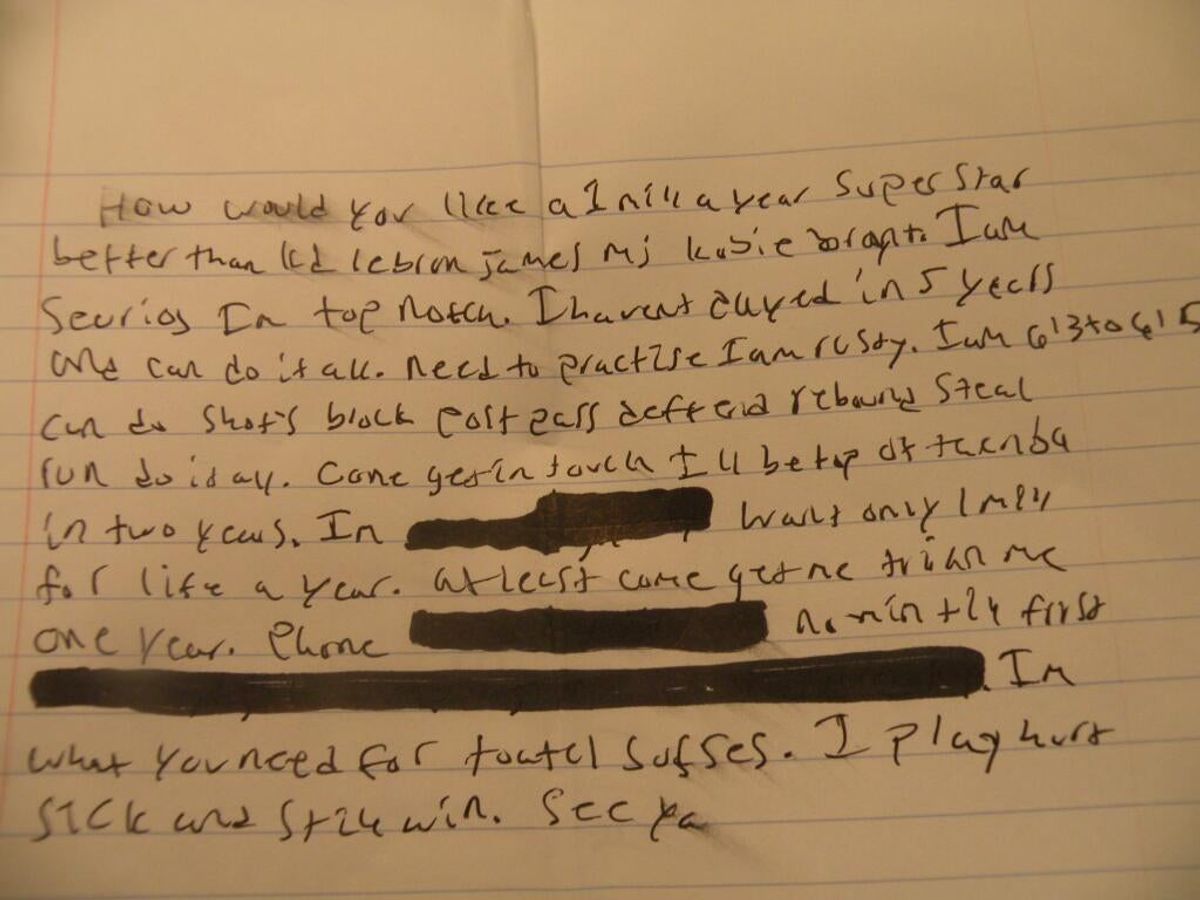 How would you like a 1 mill a year Super Star
better than kd lebron james mj kobie brapt. I am
Seurios Im top notch. I havent played in 5 years
and can do it all. need to practise I am rusty. I am 6'3 to 6'5
can do shots block post pass deffend rebound steal
run do it all. Come get in touch I ll be top of the nba
in two years. Im want only 1 mill
for life a year. at least come get me trian me
one year. Phone first
Im
what you need for toatel sufses. I play hurt
sick and still win. See ya